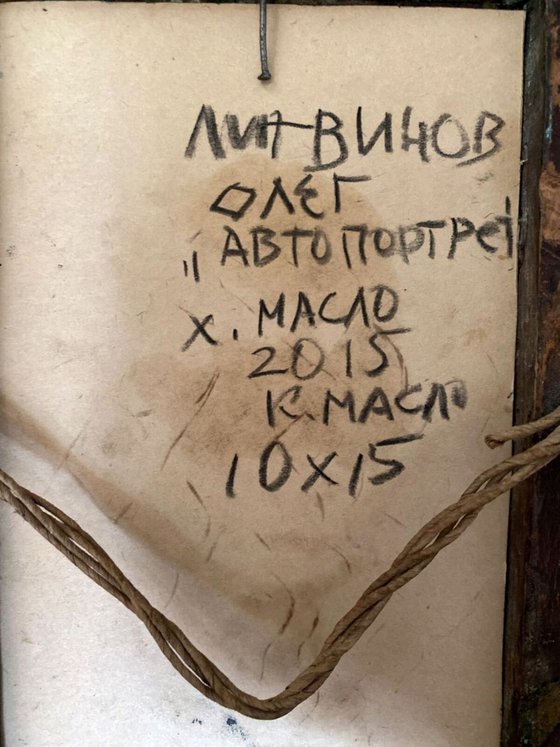 ЛИТВИНОВ
ОЛЕГ
"АВТОПОРТРЕТ
Х. МАСЛО
2015
К. МАСЛО
10х15